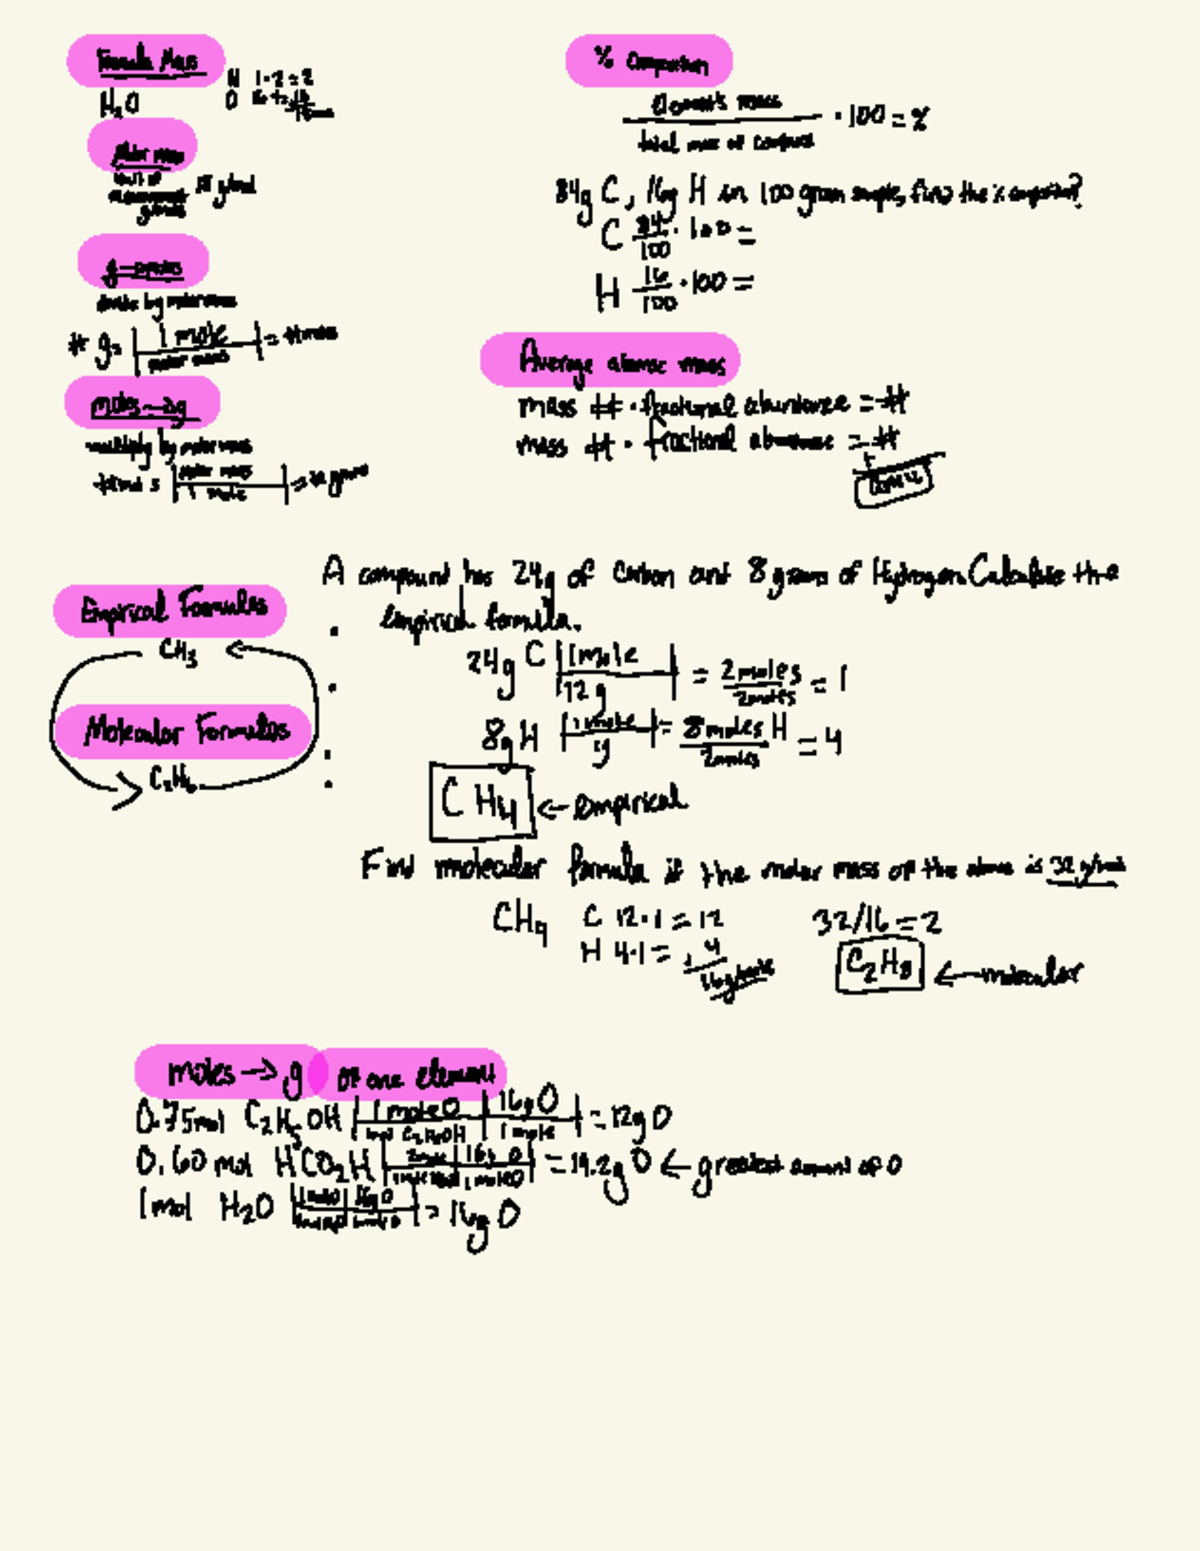 Formula Mass
H₂O
H 1·2=2
O 16·1=16
Molar mass
unit of
g/mol
g→moles
divide by molar mass
# g | 1 mole / molar mass | = # moles
moles→g
multiply by molar mass
| molar mass / 1 mole | = # grams
% Composition
element's mass / total mass of compound · 100 = %
84g C, 16g H in 100 gram sample, find the % composition?
C 84/100 · 100 =
H 16/100 · 100 =
Average atomic mass
mass # · fractional abundance = #
mass # · fractional abundance = #
+
amu
Empirical Formulas
CH₃
Molecular Formulas
C₂H₆
A compound has 24g of Carbon and 8 grams of Hydrogen. Calculate the
empirical formula.
24g C | 1 mole / 12 g | = 2 moles / 2 moles = 1
8g H | 1 mole / g | = 8 moles H / 2 moles = 4
CH₄ ← empirical
Find molecular formula if the molar mass of the above is 32 g/mol
CH₄ C 12·1=12 32/16=2
H 4·1= +4
16g/mole
C₂H₈ ← molecular
moles → g of one element
0.75mol C₂H₅OH | 1 mole O / 1 mol C₂H₅OH | 16g O / 1 mole | = 12g O
0.60 mol HCO₂H | 2 mole / | 16g O / 1 mole O | = 19.2g O ← greatest amount of O
1mol H₂O | 1 mol O / 1 mol H₂O | 16g O / 1 mole O | = 16g O